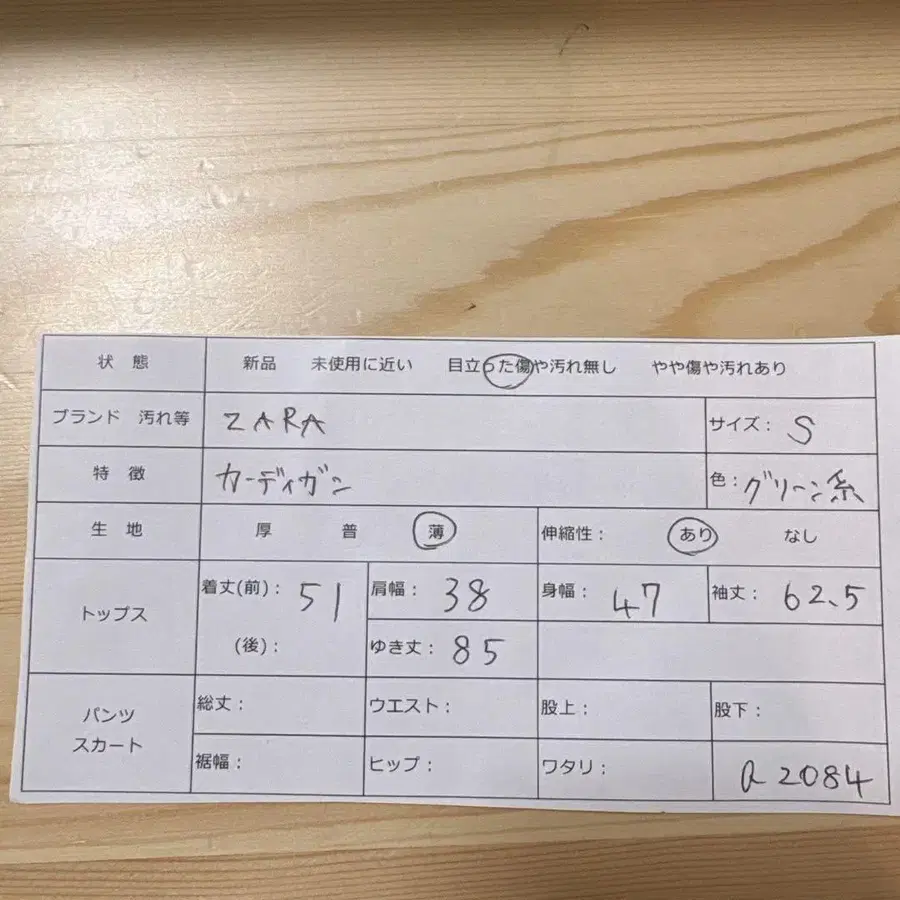 状 態 新品 未使用に近い 目立った傷や汚れ無し やや傷や汚れあり
ブランド 汚れ等 ZARA サイズ： S
特 徴 カーディガン 色： グリーン系
生 地 厚 普 薄 伸縮性： あり なし
トップス 着丈(前)： 51 肩幅： 38 身幅： 47 袖丈： 62.5
(後)： ゆき丈： 85
パンツ スカート 総丈： ウエスト： 股上： 股下：
裾幅： ヒップ： ワタリ： a 2084